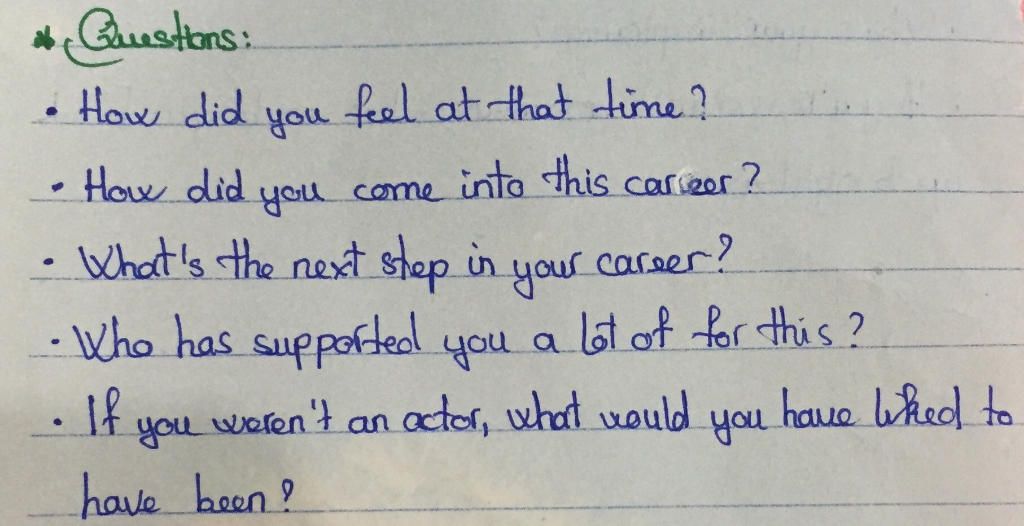 * Questions:
• How did you feel at that time?
• How did you come into this career?
• What's the next step in your career?
• Who has supported you a lot of for this?
• If you weren't an actor, what would you have liked to
have been?